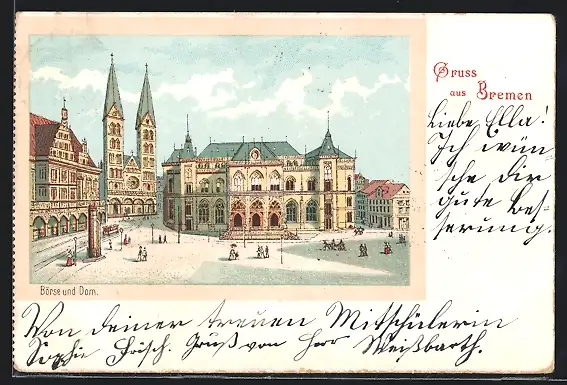 Gruss
aus Bremen
Liebe Ella!
Ich wün-
sche Dir
gute Bes-
serung.
Börse und Dom.
Von Deiner treuen Mitschülerin
Sophie Frisch. Gruß von Herr Weißbarth.